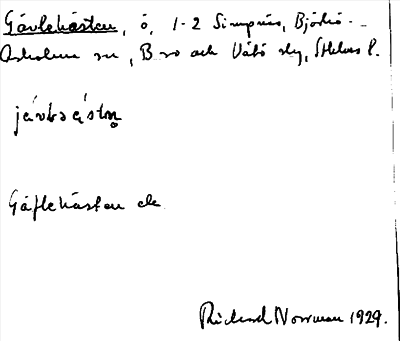 Gävlehästen, ö, 1-2 Simpnäs, Björkö-
Arholma sn, B ro och Väddö skg, Sthlms l.
jävləästn̥
Gäflehästen ek
Rickard Norrman 1929.